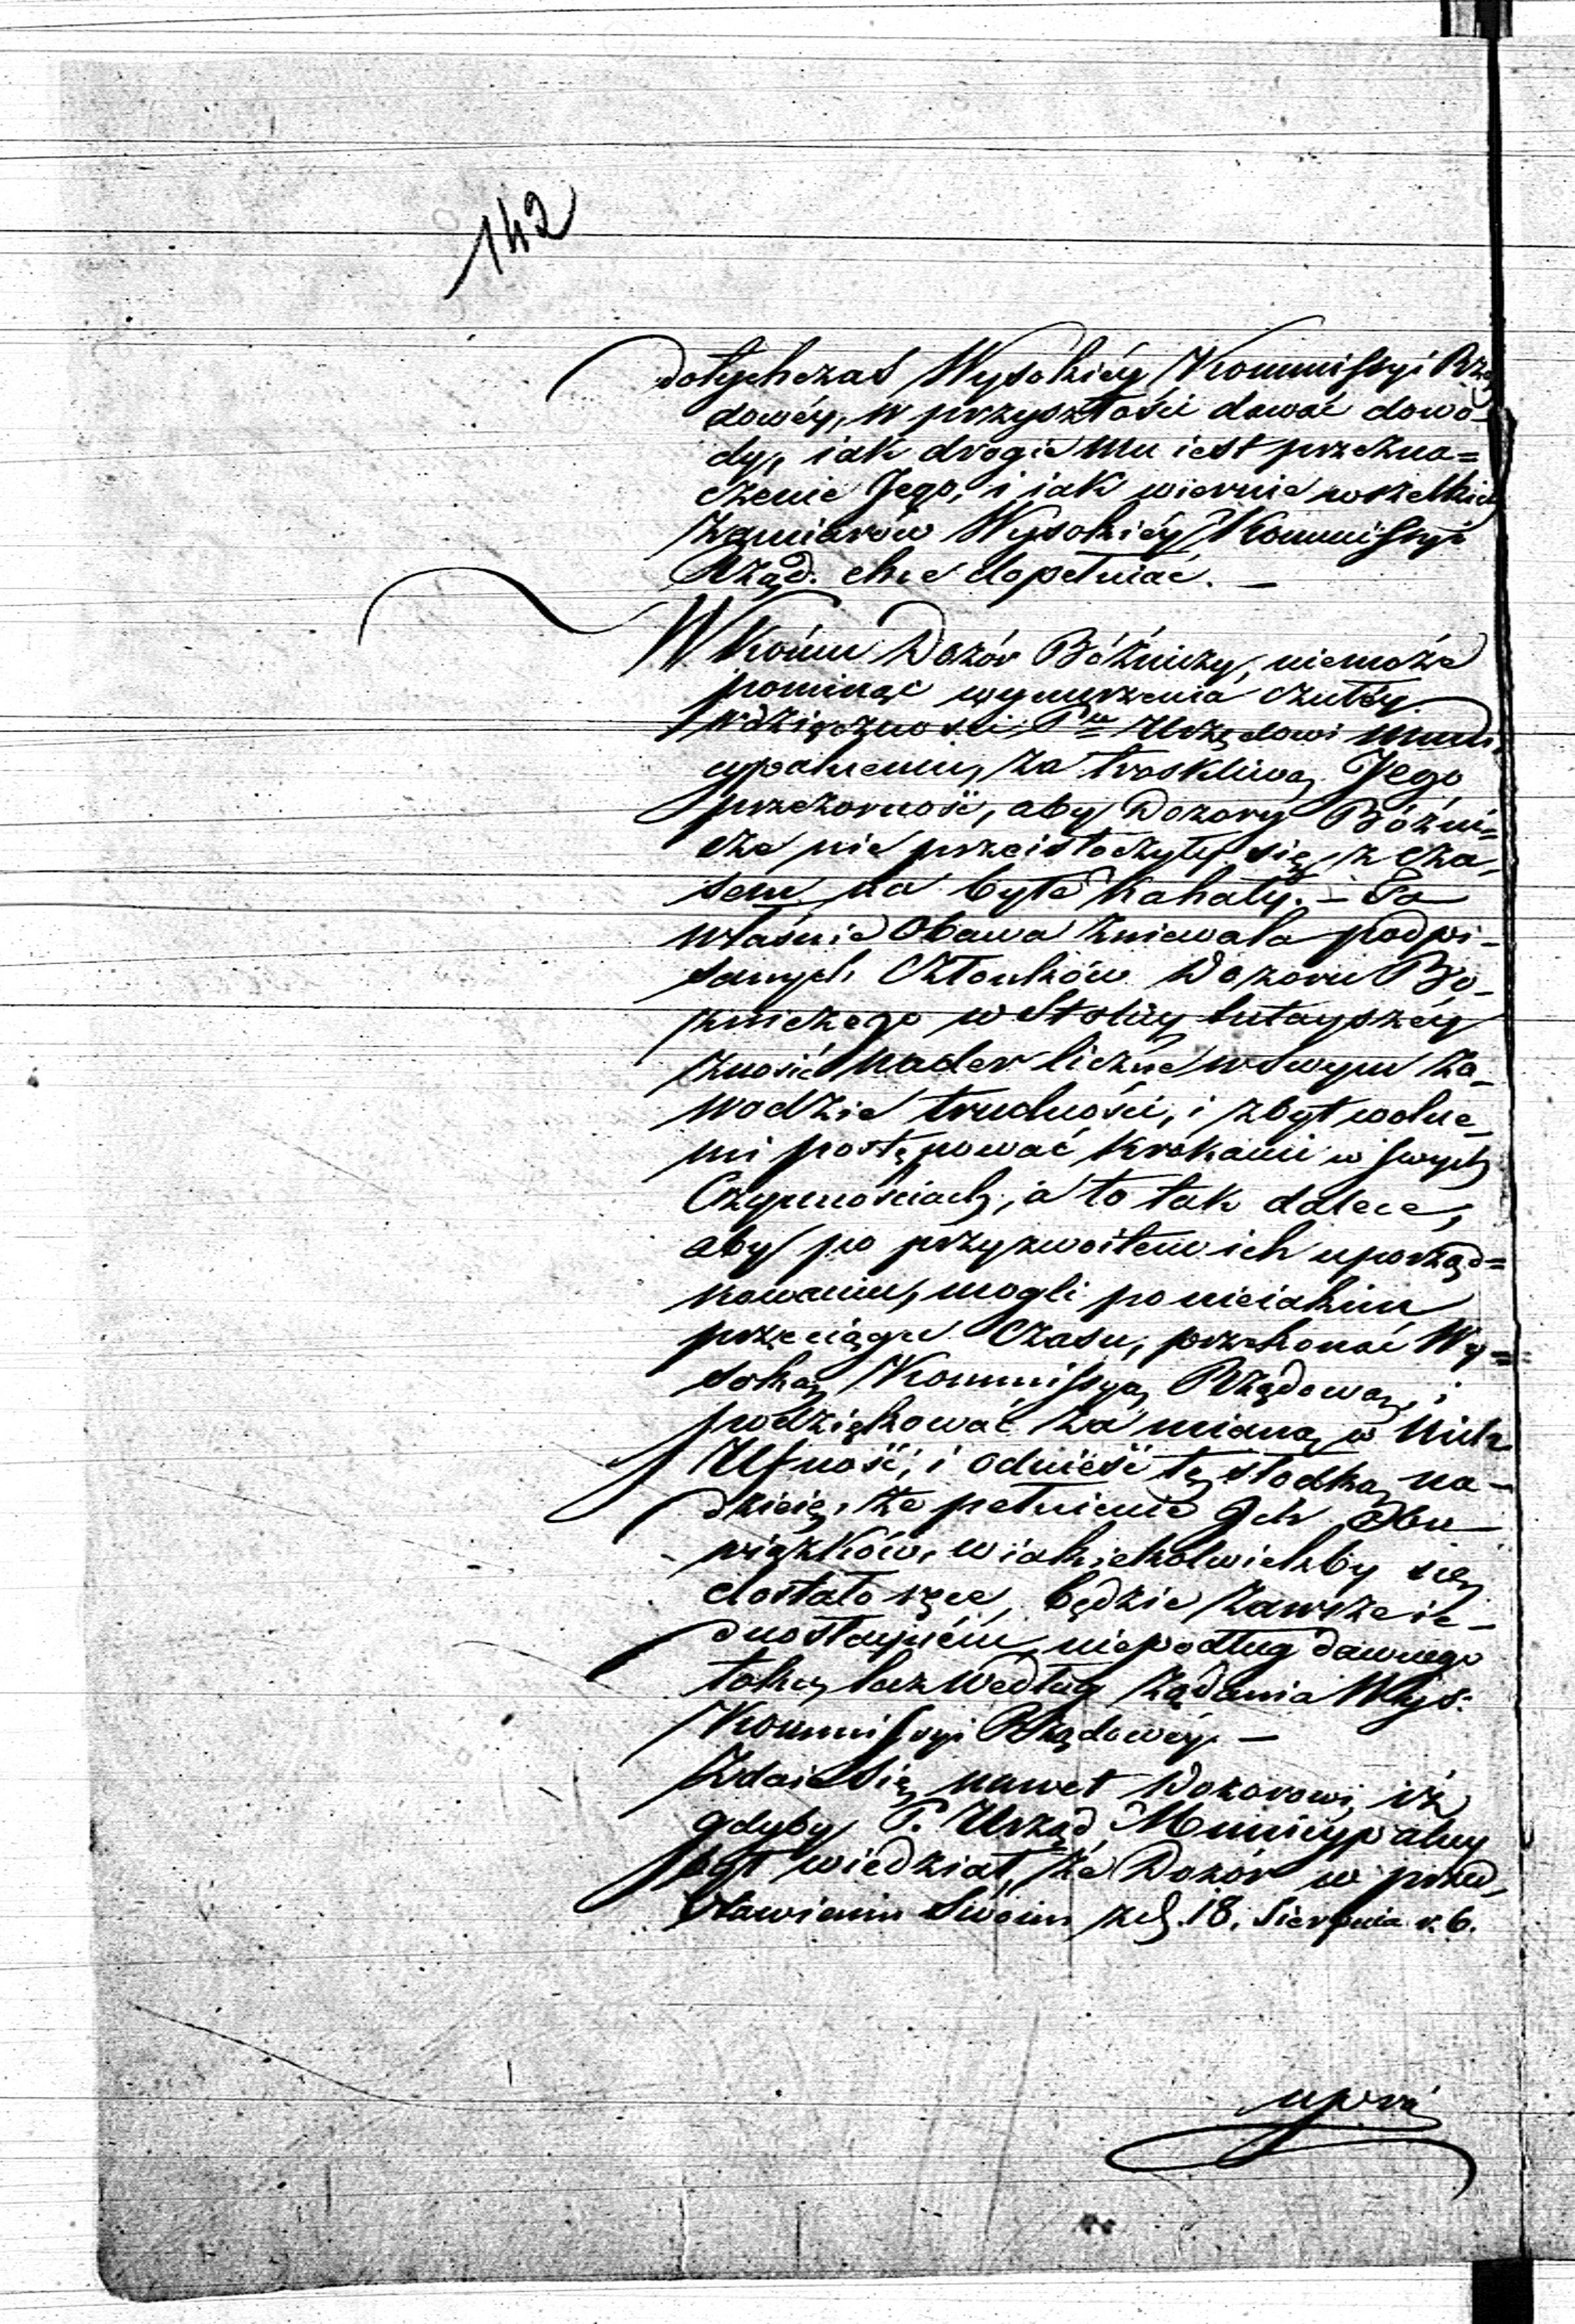 142
dotychczas Wysokiéy Kommissyi Rzą
dowéy, w przyszłości dawać dowo-
dy, iak drogie mu iest przezna=
czenie Jego, i iak wiernie wszelkich
zamiarów Wysokiéy Kommissyi
Rząd. chce dopełniać. —
W Końcu Dozór Bóźniczy, niemoże
pominąć wynurzenia czułéy
wdzięczności Pu Urzędowi Muni-
cypalnemu, za troskliwą Jego
przezorność, aby Dozory Bóźni=
cze nie przeistoczyły się z cza-
sem na byłe Kahały. – Ta
właśnie Obawa zniewala podpi-
sanych Członków Dozoru Bo-
zniczego w Stolicy tutayszéy
znosić nader liczne w swym za-
wodzie trudności, i zbyt wolne-
mi postępować krokami w swych
Czynnościach, a to tak dalece,
aby po przyzwoitem ich uporząd=
kowaniu, mogli po nieiakim
przeciągu Czasu, przekonać Wy=
soką Kommissyą Rządową, i
podziękować za mianą w Nich
Ufność, i odnieść tę słodką na-
dzieię, że pełnienie Ich Obo-
wiązków, w iakiekolwiekby się
dostało ręce, będzie zawsze ie-
dnostayném, niepodług dawnego
toku, lecz według żądania Wys:
Kommissyi Rządowéy. —
Zdaie się nawet Dozorowi, iż
gdyby P. Urząd Municypalny
był wiedział, że Dozór w przed-
stawieniu Swoim z d. 18. Sierpnia r. b.